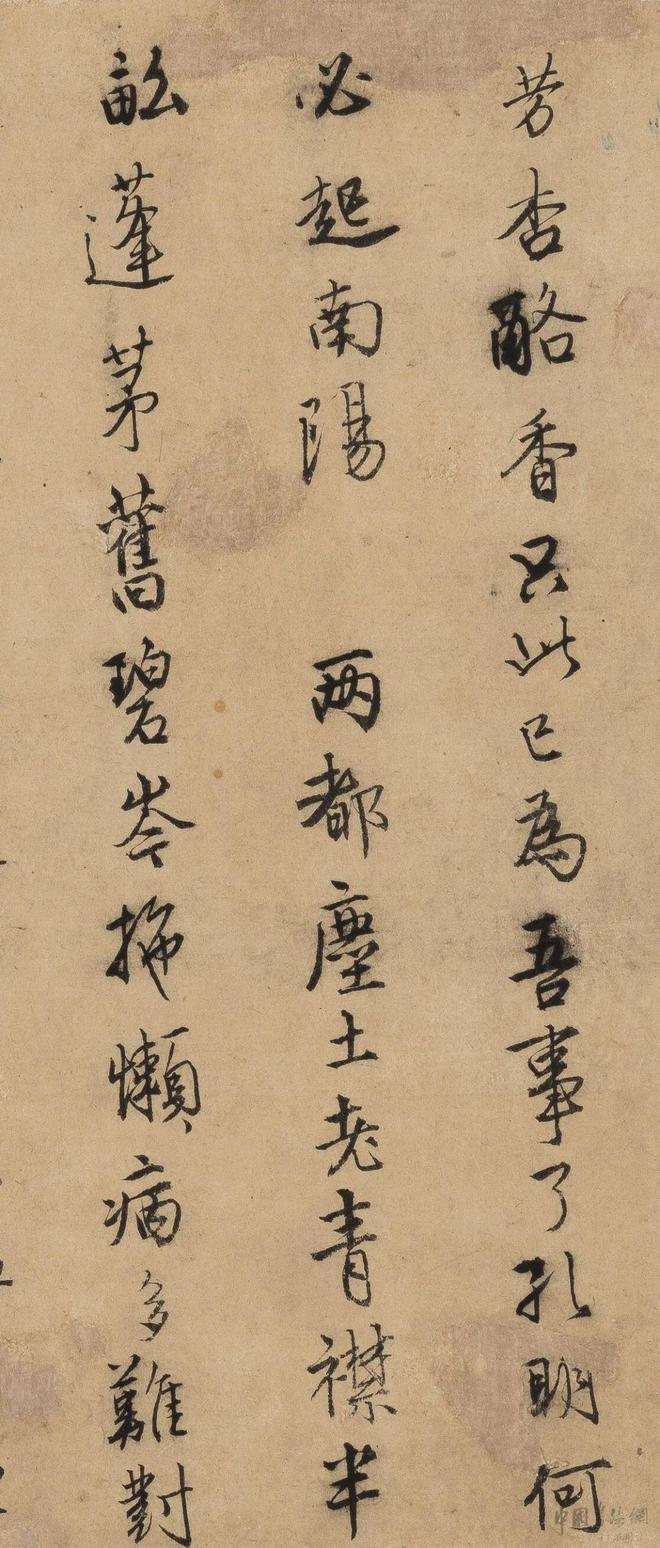 芳杏酪香只此已為吾事了孔明何
必起南陽　兩都塵土老青襟半
畝蓬茅舊碧岑拙懶病多難對